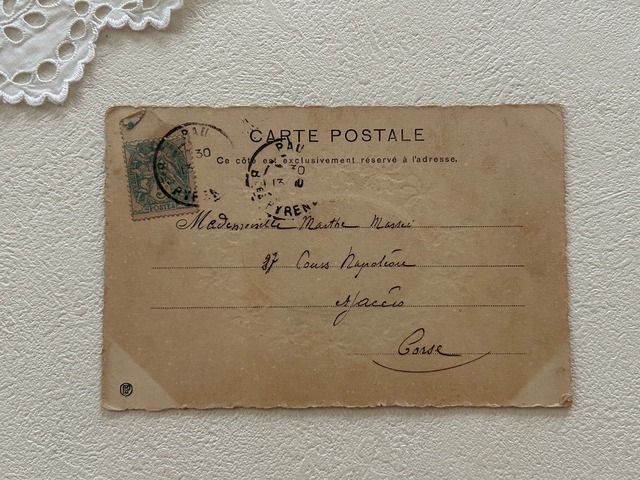 CARTE POSTALE
Ce côté est exclusivement réservé à l'adresse.
PAU
30
PYREN
PAU
30
13
PYREN
POSTES
Mademoiselle Marthe Massei
37 Cours Napoléon
Ajaccio
Corse